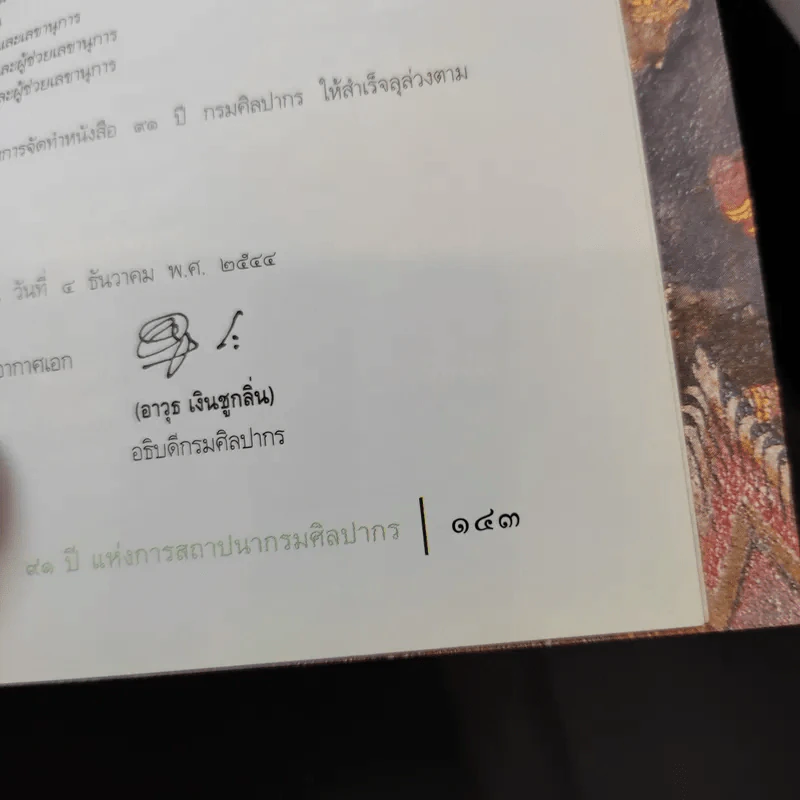 และเลขานุการ
และผู้ช่วยเลขานุการ
และผู้ช่วยเลขานุการ
การจัดทำหนังสือ ๙๑ ปี กรมศิลปากร ให้สำเร็จลุล่วงตาม
วันที่ ๔ ธันวาคม พ.ศ. ๒๕๔๔
อากาศเอก
(อาวุธ เงินชูกลิ่น)
อธิบดีกรมศิลปากร
๙๑ ปี แห่งการสถาปนากรมศิลปากร ๑๔๓